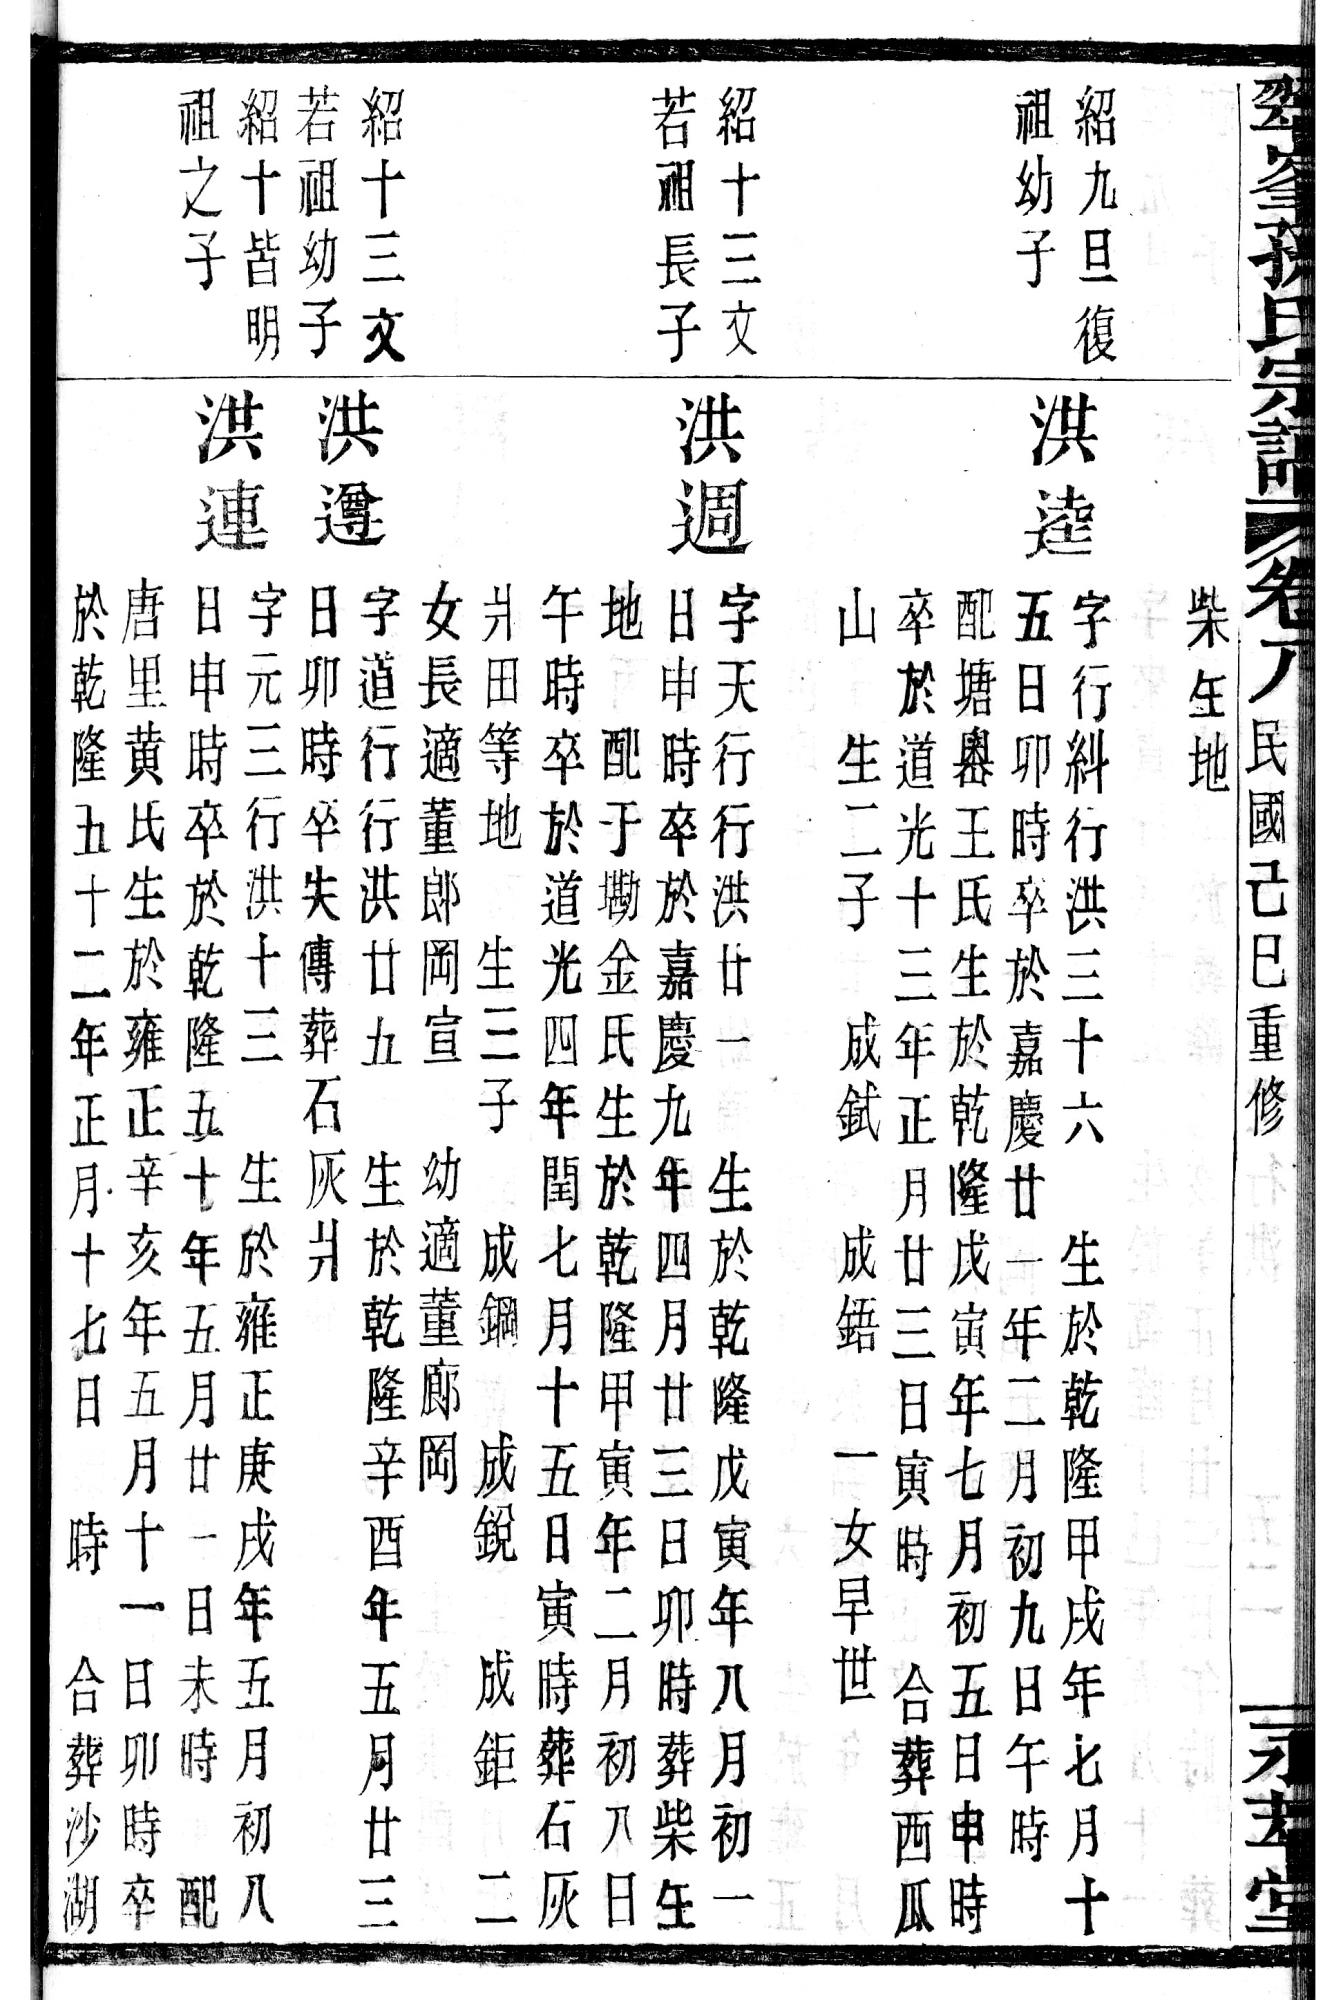 氏宗譜 卷八 民國己巳重修
柴𡉏地
紹九旦復
祖幼子
洪逵
字行糾行洪三十六 生於乾隆甲戌年七月十
五日卯時卒於嘉慶廿一年二月初九日午時
配塘㘭王氏生於乾隆戊寅年七月初五日申時
卒於道光十三年正月廿三日寅時 合葬西瓜
山 生二子 成鉽 成鋙 一女早世
紹十三文
若祖長子
洪週
字天行行洪廿一 生於乾隆戊寅年八月初一
日申時卒於嘉慶九年四月廿三日卯時葬柴𡉏
地 配于墈金氏生於乾隆甲寅年二月初八日
午時卒於道光四年閏七月十五日寅時葬石灰
爿田等地 生三子 成鋼 成銳 成鉅 二
女長適董郎岡宣 幼適董廊岡
紹十三文
若祖幼子
洪遵
字道行行洪廿九 生於乾隆辛酉年五月廿三
日卯時卒失傳葬石灰爿
紹十皆明
祖之子
洪連
字元三行洪十三 生於雍正庚戌年五月初八
日申時卒於乾隆五十年五月廿一日未時 配
唐里黄氏生於雍正辛亥年五月十一日卯時卒
於乾隆五十二年正月十七日 時 合葬沙湖
永 堂